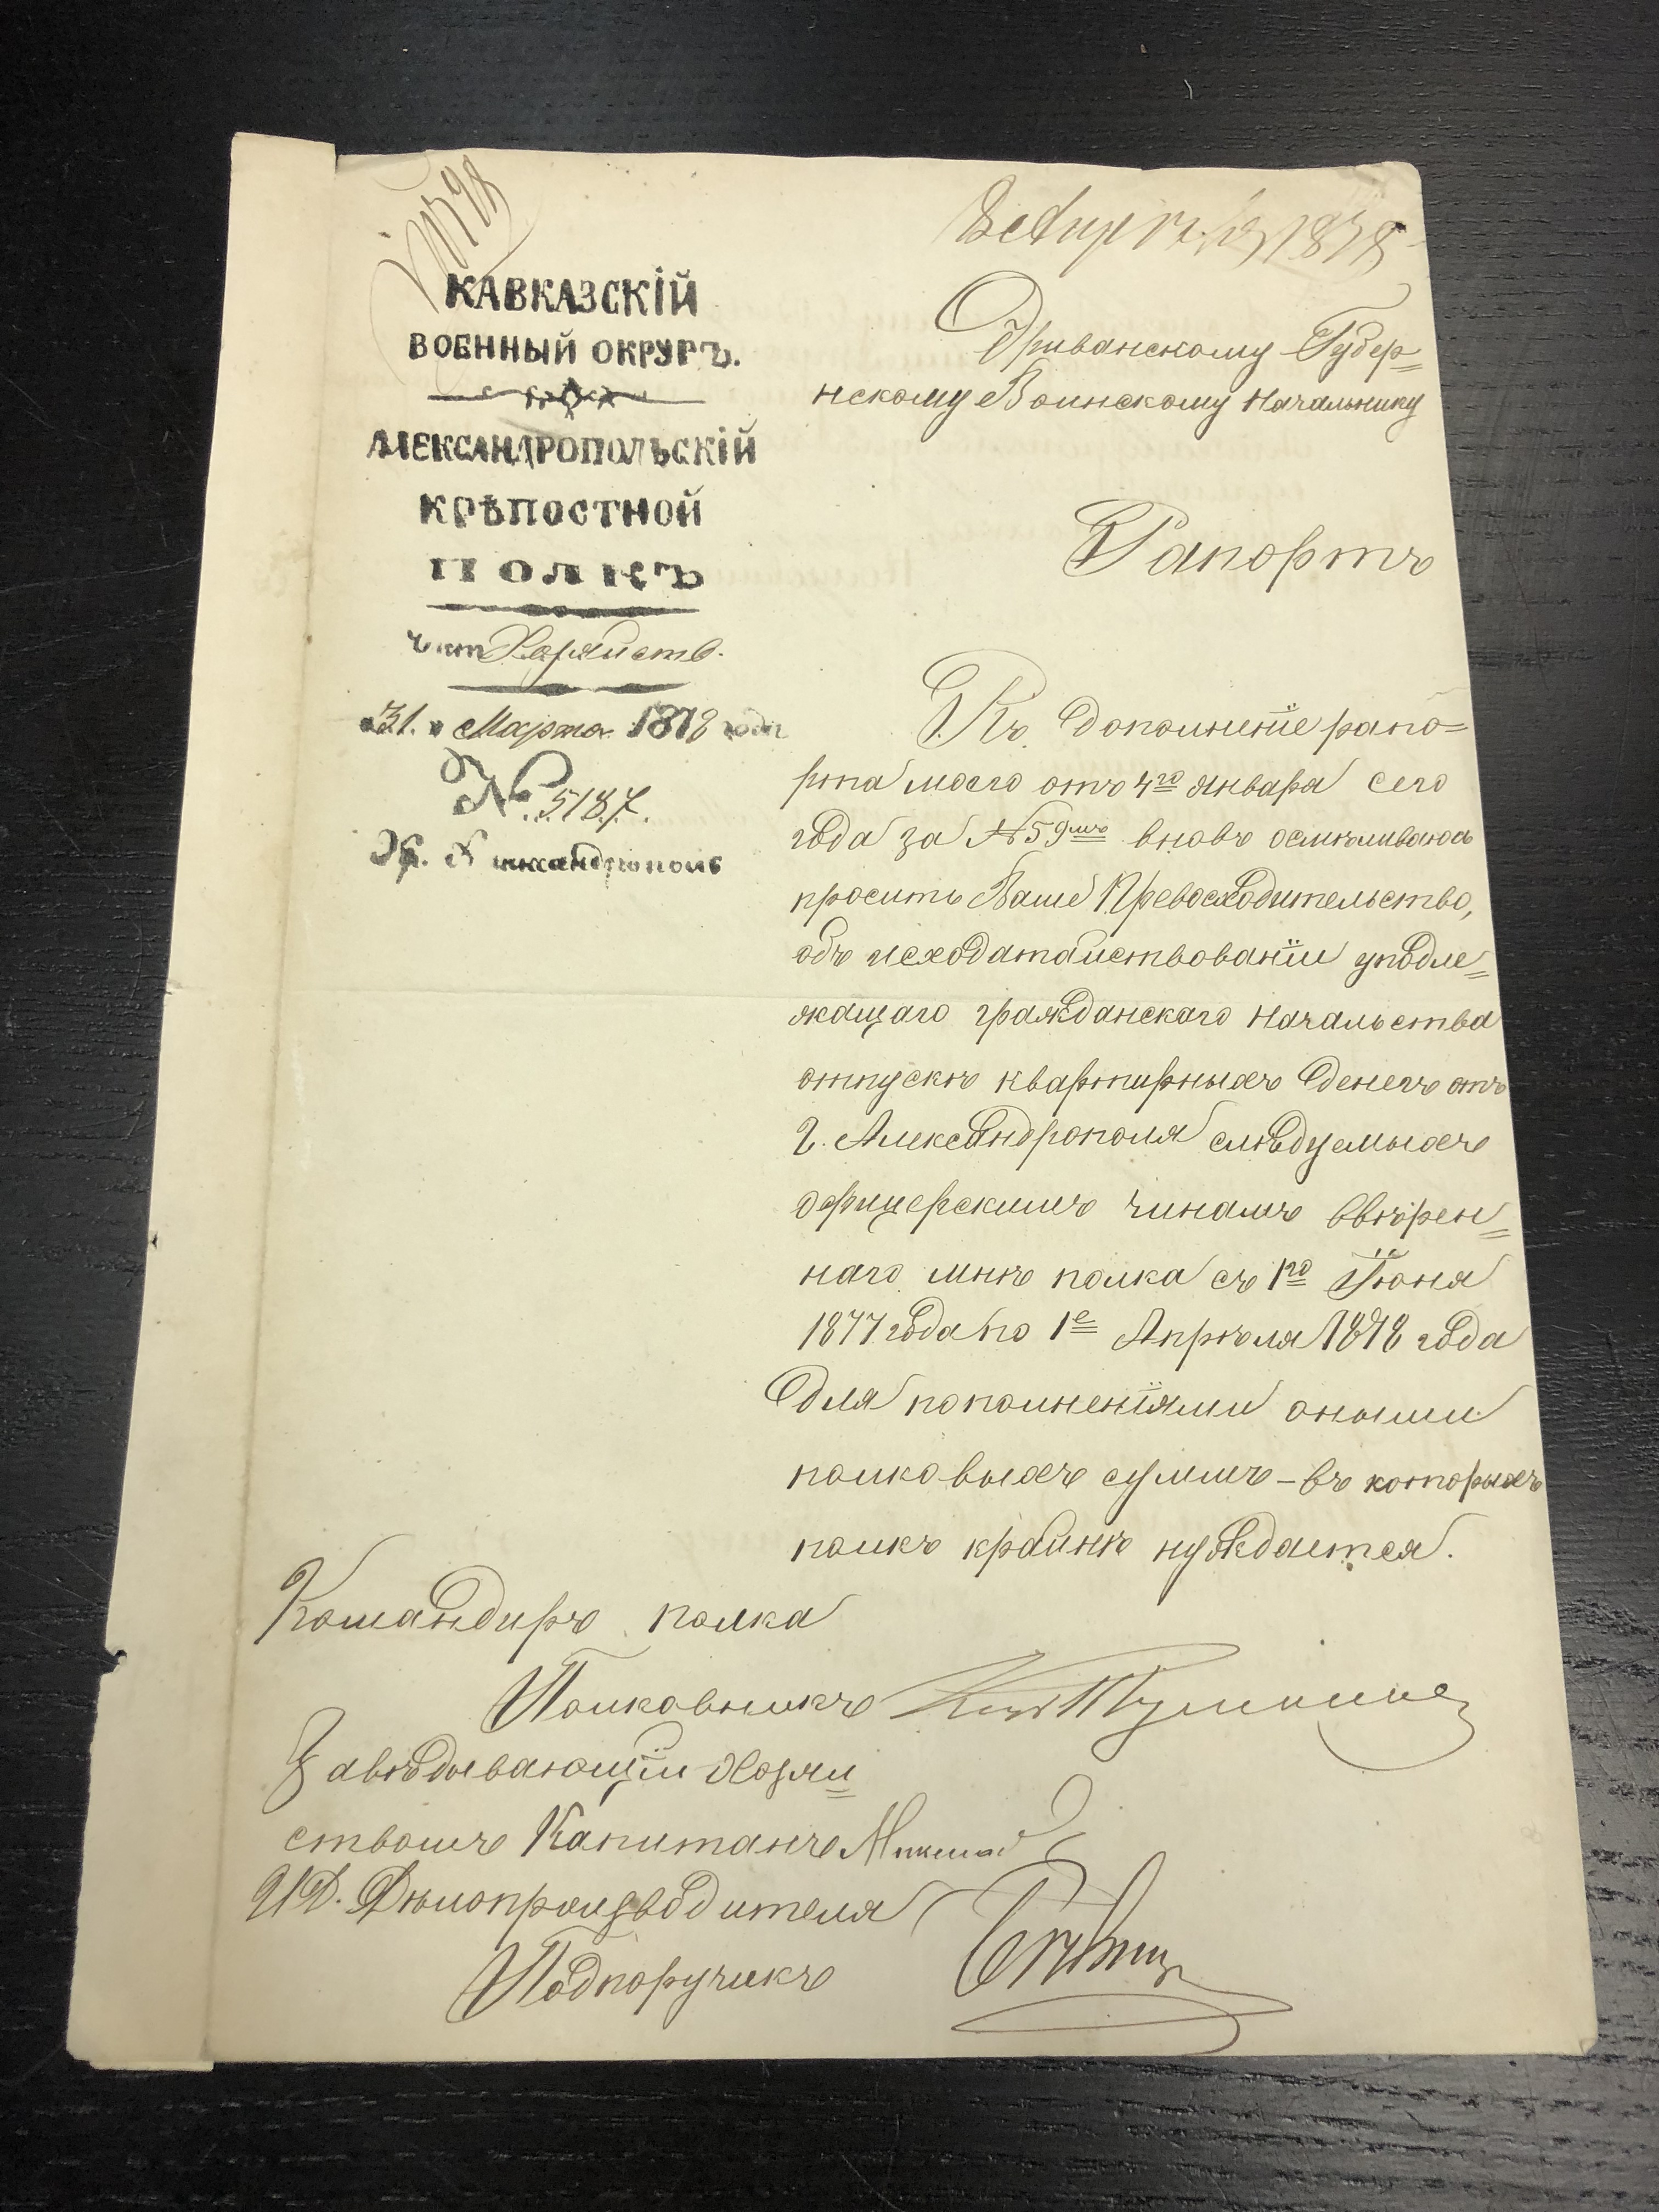 КАВКАЗСКІЙ
ВОЕННЫЙ ОКРУГЪ.
АЛЕКСАНДРОПОЛЬСКІЙ
КРѢПОСТНОЙ
ПОЛКЪ
Хозяйств.
31. Марта 1878 года
№ 5187.
Кр. Александрополь
1878
Эриванскому Губер=
нскому Воинскому Начальнику
Рапортъ
Въ дополненіе рапо=
рта моего отъ 4го Января сего
года за №59мъ вновь осмѣливаюсь
просить Ваше Превосходительство,
объ исходатайствованіи у подле=
жащаго гражданскаго начальства
отпускъ квартирныхъ денегъ отъ
г. Александрополя слѣдуемыхъ
офицерскимъ чинамъ ввѣрен=
наго мнѣ полка съ 1го Іюня
1877 года по 1е Апрѣля 1878 года
для пополненіями оными
полковыхъ суммъ – въ которыхъ
полкъ крайнѣ нуждается.
Командиръ полка
Полковникъ
Завѣдывающій Хозяй=
ствомъ Капитанъ
И.Д. Дѣлопроизводителя
Подпоручикъ